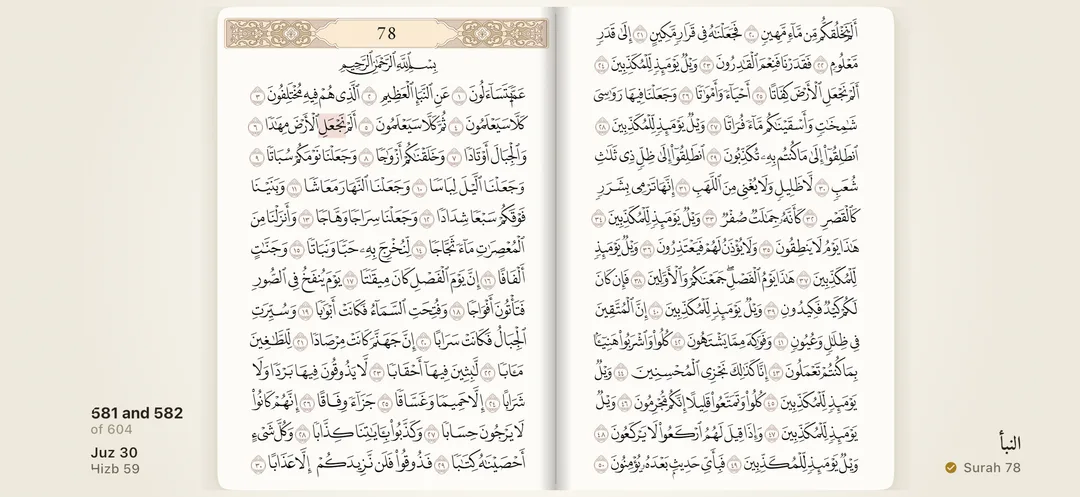 أَلَمْ نَخْلُقكُّم مِّن مَّآءٍ مَّهِينٍ ٢٠ فَجَعَلْنَٰهُ فِى قَرَارٍ مَّكِينٍ ٢١ إِلَىٰ قَدَرٍ
مَّعْلُومٍ ٢٢ فَقَدَرْنَا فَنِعْمَ ٱلْقَٰدِرُونَ ٢٣ وَيْلٌ يَوْمَئِذٍ لِّلْمُكَذِّبِينَ ٢٤
أَلَمْ نَجْعَلِ ٱلْأَرْضَ كِفَاتًا ٢٥ أَحْيَآءً وَأَمْوَٰتًا ٢٦ وَجَعَلْنَا فِيهَا رَوَٰسِىَ
شَٰمِخَٰتٍ وَأَسْقَيْنَٰكُم مَّآءً فُرَاتًا ٢٧ وَيْلٌ يَوْمَئِذٍ لِّلْمُكَذِّبِينَ ٢٨
ٱنطَلِقُوٓا۟ إِلَىٰ مَا كُنتُم بِهِۦ تُكَذِّبُونَ ٢٩ ٱنطَلِقُوٓا۟ إِلَىٰ ظِلٍّ ذِى ثَلَٰثِ
شُعَبٍ ٣٠ لَّا ظَلِيلٍ وَلَا يُغْنِى مِنَ ٱللَّهَبِ ٣١ إِنَّهَا تَرْمِى بِشَرَرٍ
كَٱلْقَصْرِ ٣٢ كَأَنَّهُۥ جِمَٰلَتٌ صُفْرٌ ٣٣ وَيْلٌ يَوْمَئِذٍ لِّلْمُكَذِّبِينَ ٣٤
هَٰذَا يَوْمُ لَا يَنطِقُونَ ٣٥ وَلَا يُؤْذَنُ لَهُمْ فَيَعْتَذِرُونَ ٣٦ وَيْلٌ يَوْمَئِذٍ
لِّلْمُكَذِّبِينَ ٣٧ هَٰذَا يَوْمُ ٱلْفَصْلِ ۖ جَمَعْنَٰكُمْ وَٱلْأَوَّلِينَ ٣٨ فَإِن كَانَ
لَكُمْ كَيْدٌ فَكِيدُونِ ٣٩ وَيْلٌ يَوْمَئِذٍ لِّلْمُكَذِّبِينَ ٤٠ إِنَّ ٱلْمُتَّقِينَ
فِى ظِلَٰلٍ وَعُيُونٍ ٤١ وَفَوَٰكِهَ مِمَّا يَشْتَهُونَ ٤٢ كُلُوا۟ وَٱشْرَبُوا۟ هَنِيٓـًٔۢا
بِمَا كُنتُمْ تَعْمَلُونَ ٤٣ إِنَّا كَذَٰلِكَ نَجْزِى ٱلْمُحْسِنِينَ ٤٤ وَيْلٌ
يَوْمَئِذٍ لِّلْمُكَذِّبِينَ ٤٥ كُلُوا۟ وَتَمَتَّعُوا۟ قَلِيلًا إِنَّكُم مُّجْرِمُونَ ٤٦ وَيْلٌ
يَوْمَئِذٍ لِّلْمُكَذِّبِينَ ٤٧ وَإِذَا قِيلَ لَهُمُ ٱرْكَعُوا۟ لَا يَرْكَعُونَ ٤٨
وَيْلٌ يَوْمَئِذٍ لِّلْمُكَذِّبِينَ ٤٩ فَبِأَىِّ حَدِيثٍۭ بَعْدَهُۥ يُؤْمِنُونَ ٥٠
78
بِسْمِ ٱللَّهِ ٱلرَّحْمَٰنِ ٱلرَّحِيمِ
عَمَّ يَتَسَآءَلُونَ ١ عَنِ ٱلنَّبَإِ ٱلْعَظِيمِ ٢ ٱلَّذِى هُمْ فِيهِ مُخْتَلِفُونَ ٣
كَلَّا سَيَعْلَمُونَ ٤ ثُمَّ كَلَّا سَيَعْلَمُونَ ٥ أَلَمْ نَجْعَلِ ٱلْأَرْضَ مِهَٰدًا ٦
وَٱلْجِبَالَ أَوْتَادًا ٧ وَخَلَقْنَٰكُمْ أَزْوَٰجًا ٨ وَجَعَلْنَا نَوْمَكُمْ سُبَاتًا ٩
وَجَعَلْنَا ٱلَّيْلَ لِبَاسًا ١٠ وَجَعَلْنَا ٱلنَّهَارَ مَعَاشًا ١١ وَبَنَيْنَا
فَوْقَكُمْ سَبْعًا شِدَادًا ١٢ وَجَعَلْنَا سِرَاجًا وَهَّاجًا ١٣ وَأَنزَلْنَا مِنَ
ٱلْمُعْصِرَٰتِ مَآءً ثَجَّاجًا ١٤ لِّنُخْرِجَ بِهِۦ حَبًّا وَنَبَاتًا ١٥ وَجَنَّٰتٍ
أَلْفَافًا ١٦ إِنَّ يَوْمَ ٱلْفَصْلِ كَانَ مِيقَٰتًا ١٧ يَوْمَ يُنفَخُ فِى ٱلصُّورِ
فَتَأْتُونَ أَفْوَاجًا ١٨ وَفُتِحَتِ ٱلسَّمَآءُ فَكَانَتْ أَبْوَٰبًا ١٩ وَسُيِّرَتِ
ٱلْجِبَالُ فَكَانَتْ سَرَابًا ٢٠ إِنَّ جَهَنَّمَ كَانَتْ مِرْصَادًا ٢١ لِّلطَّٰغِينَ
مَـَٔابًا ٢٢ لَّٰبِثِينَ فِيهَآ أَحْقَابًا ٢٣ لَّا يَذُوقُونَ فِيهَا بَرْدًا وَلَا
شَرَابًا ٢٤ إِلَّا حَمِيمًا وَغَسَّاقًا ٢٥ جَزَآءً وِفَاقًا ٢٦ إِنَّهُمْ كَانُوا۟
لَا يَرْجُونَ حِسَابًا ٢٧ وَكَذَّبُوا۟ بِـَٔايَٰتِنَا كِذَّابًا ٢٨ وَكُلَّ شَىْءٍ
أَحْصَيْنَٰهُ كِتَٰبًا ٢٩ فَذُوقُوا۟ فَلَن نَّزِيدَكُمْ إِلَّا عَذَابًا ٣٠
581 and 582
of 604
Juz 30
Hizb 59
النبأ
Surah 78